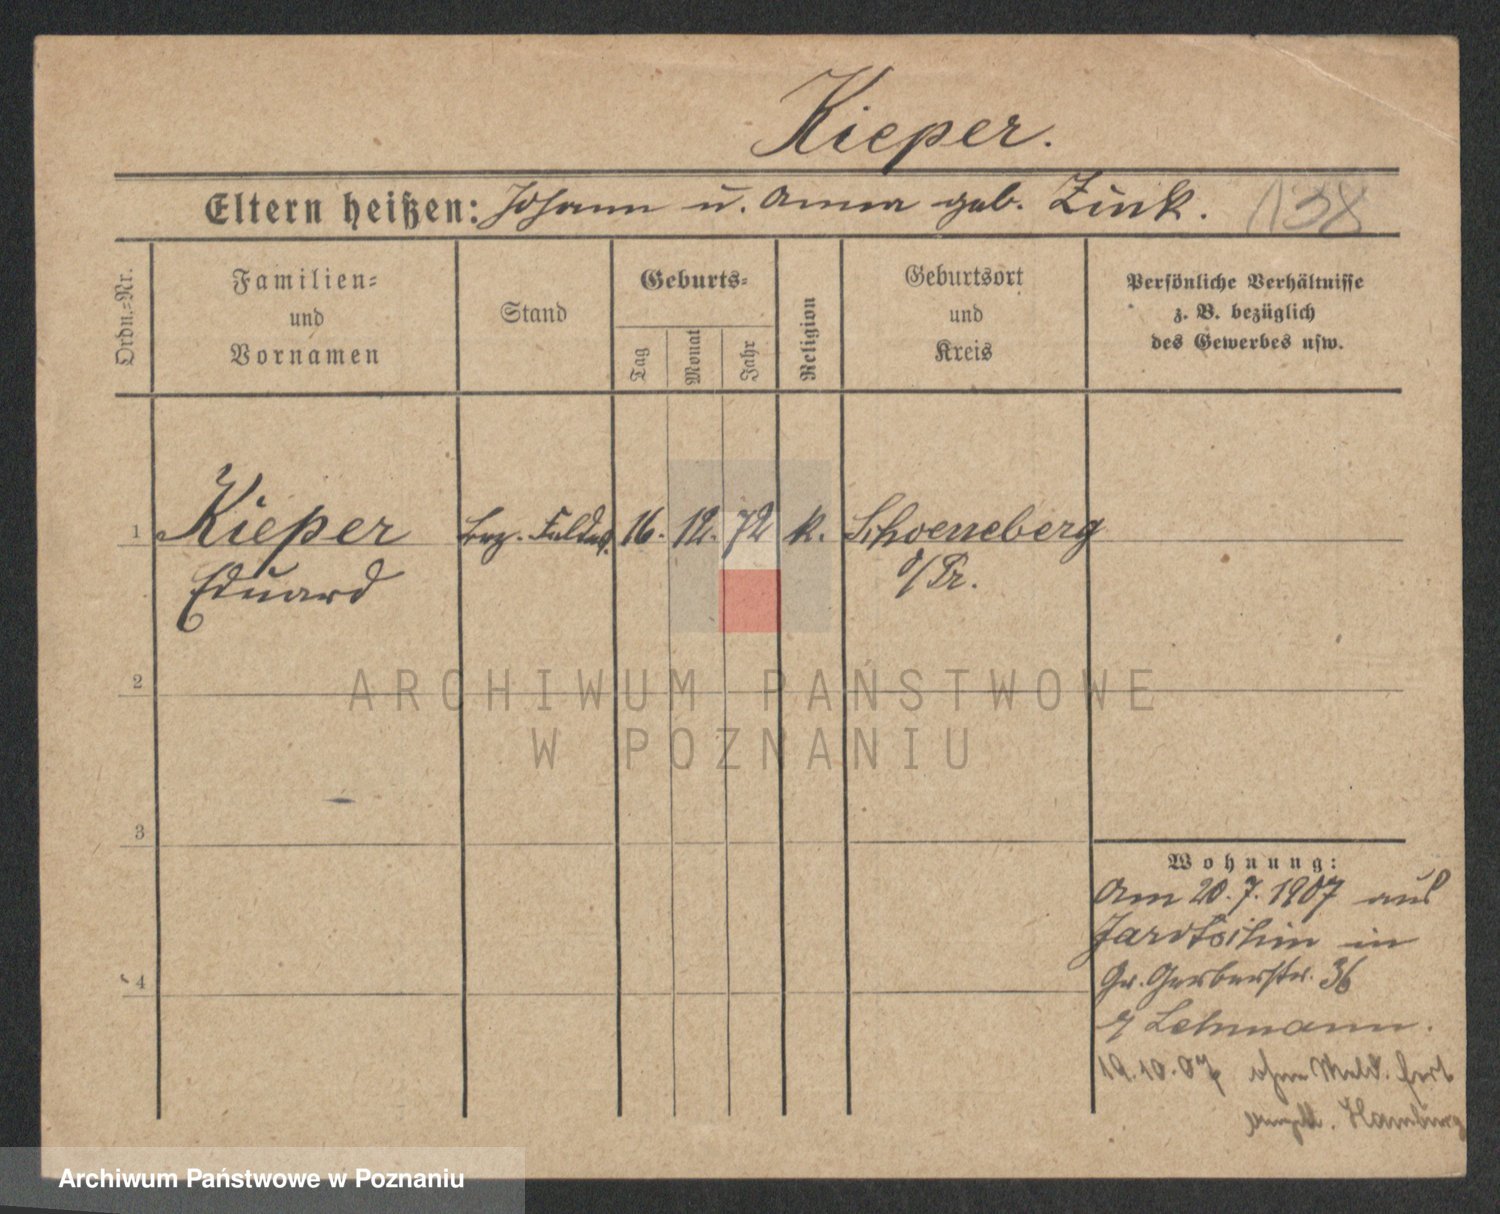 Kieper.
Eltern heißen: Johann u. Anna geb. Zink. 138
Ordn.=Nr.
Familien=
und
Vornamen
Stand
Geburts=
Tag
Monat
Jahr
Religion
Geburtsort
und
Kreis
Persönliche Verhältnisse
z. B. bezüglich
des Gewerbes usw.
1 Kieper 16. 12. 72 k. Schoeneberg
Eduard O/Pr.
2
ARCHIWUM PAŃSTWOWE
W POZNANIU
3
4
Wohnung:
Am 20.7.1907 aus
Jarotschin in
Gr. Gerberstr. 36
Lehmann.
19.10.07 ohne Meld. fort
angebl. Hamburg
Archiwum Państwowe w Poznaniu